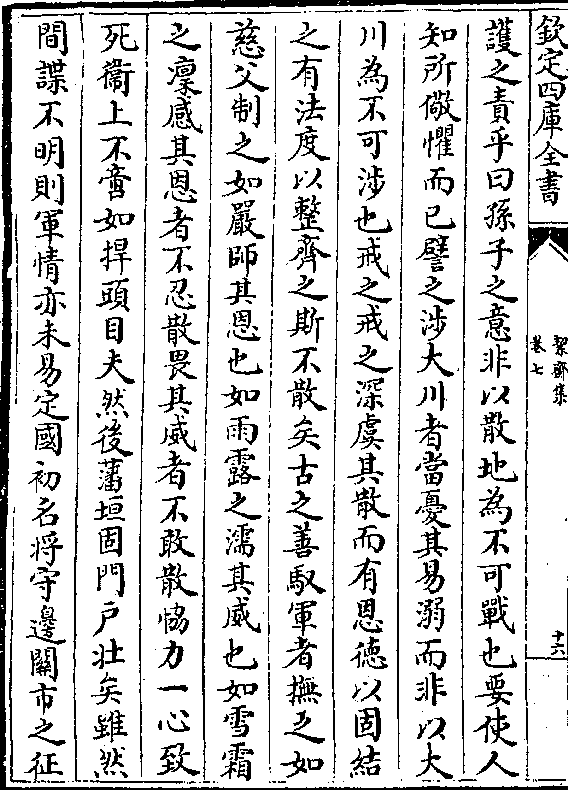 欽定四庫全書
絜齋集
卷七
十六
護之責乎曰孫子之意非以散地為不可戰也要使人
知所儆懼而已譬之涉大川者當憂其易溺而非以大
川為不可涉也戒之戒之深虞其散而有恩德以固結
之有法度以整齊之斯不散矣古之善馭軍者撫之如
慈父制之如嚴師其恩也如雨露之濡其威也如雪霜
之凛感其恩者不忍散畏其威者不敢散恊力一心致
死衞上不啻如捍頭目夫然後藩垣固門戶壯矣雖然
間諜不明則軍情亦未易定國初名將守邊關市之征